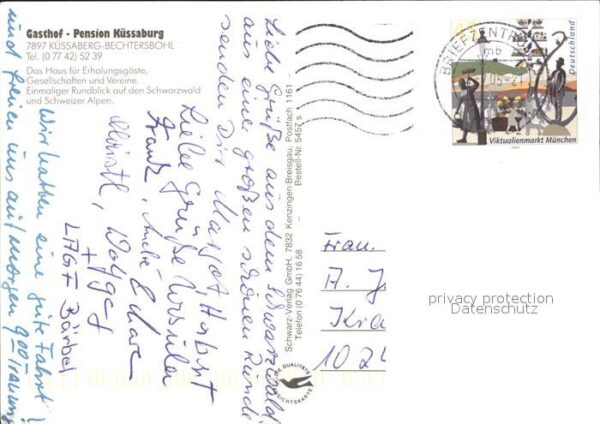 Gasthof - Pension Küssaburg
7897 KÜSSABERG-BECHTERSBOHL
Tel. (0 77 42) 52 39
Das Haus für Erholungsgäste,
Gesellschaften und Vereine.
Einmaliger Rundblick auf den Schwarzwald
und Schweizer Alpen.
Liebe Grüße aus dem Schwarzwald
aus einer großen schönen Runde
senden Dir Margot Herbst
Liebe Grüße Ursula
Frank,
Holger
+
Bärbel
Wir hatten eine gute Fahrt!
und freuen uns auf morgen 9 00 Trauung
Schwarz-Verlag GmbH, 7832 Kenzingen Breisgau, Postfach 1161
Telefon (0 76 44) 16 58 Bestell-Nr. 5457 s
BRIEFZENTRUM
mb
Deutschland
Viktualienmarkt München
Frau
A. J
Kra
1024
QUALITÄTS
ANSICHTSKARTE
privacy protection
Datenschutz